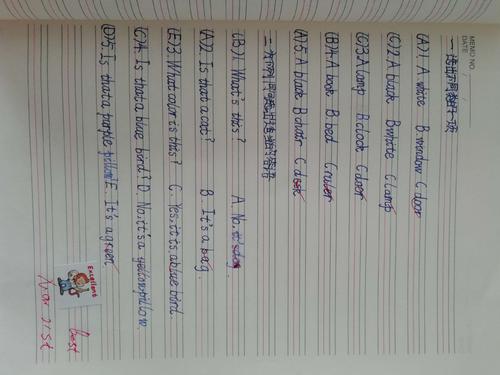 MEMO NO.
DATE
一、选出不同类的一项
(A)1. A. white B. window C. door
(C)2. A black B. white C. lamp
(C)3. A. lamp B. clock C. door
(B)4. A. book B. bed C. ruler
(A)5. A. black B. chair C. desk
二、为下列问句选出适当的答语
(B)1. What's this? A. No, it's dog.
(A)2. Is that a cat? B. It's a bag.
(E)3. What color is this? C. Yes, it is a blue bird.
(C)4. Is that a blue bird? D. No, it's a yellow pillow.
(D)5. Is that a purple pillow? E. It's a green
Excellent
Best
Mar 21st